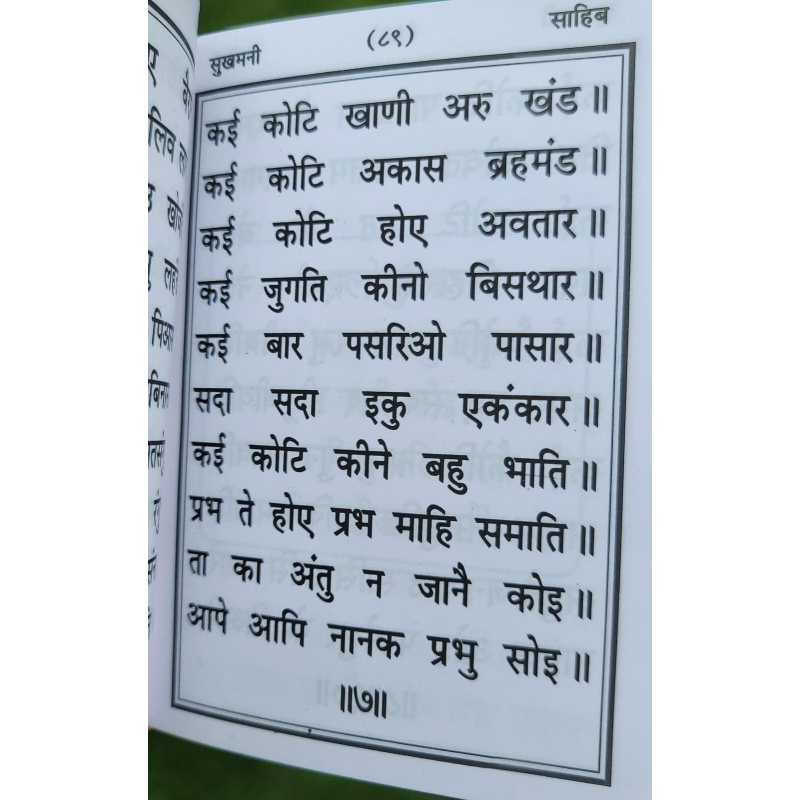 सुखमनी (८९) साहिब
कई कोटि खाणी अरु खंड॥
कई कोटि अकास ब्रहमंड॥
कई कोटि होए अवतार॥
कई जुगति कीनो बिसथार॥
कई बार पसरिओ पासार॥
सदा सदा इकु एकंकार॥
कई कोटि कीने बहु भाति॥
प्रभ ते होए प्रभ माहि समाति॥
ता का अंतु न जानै कोइ॥
आपे आपि नानक प्रभु सोइ॥
॥७॥